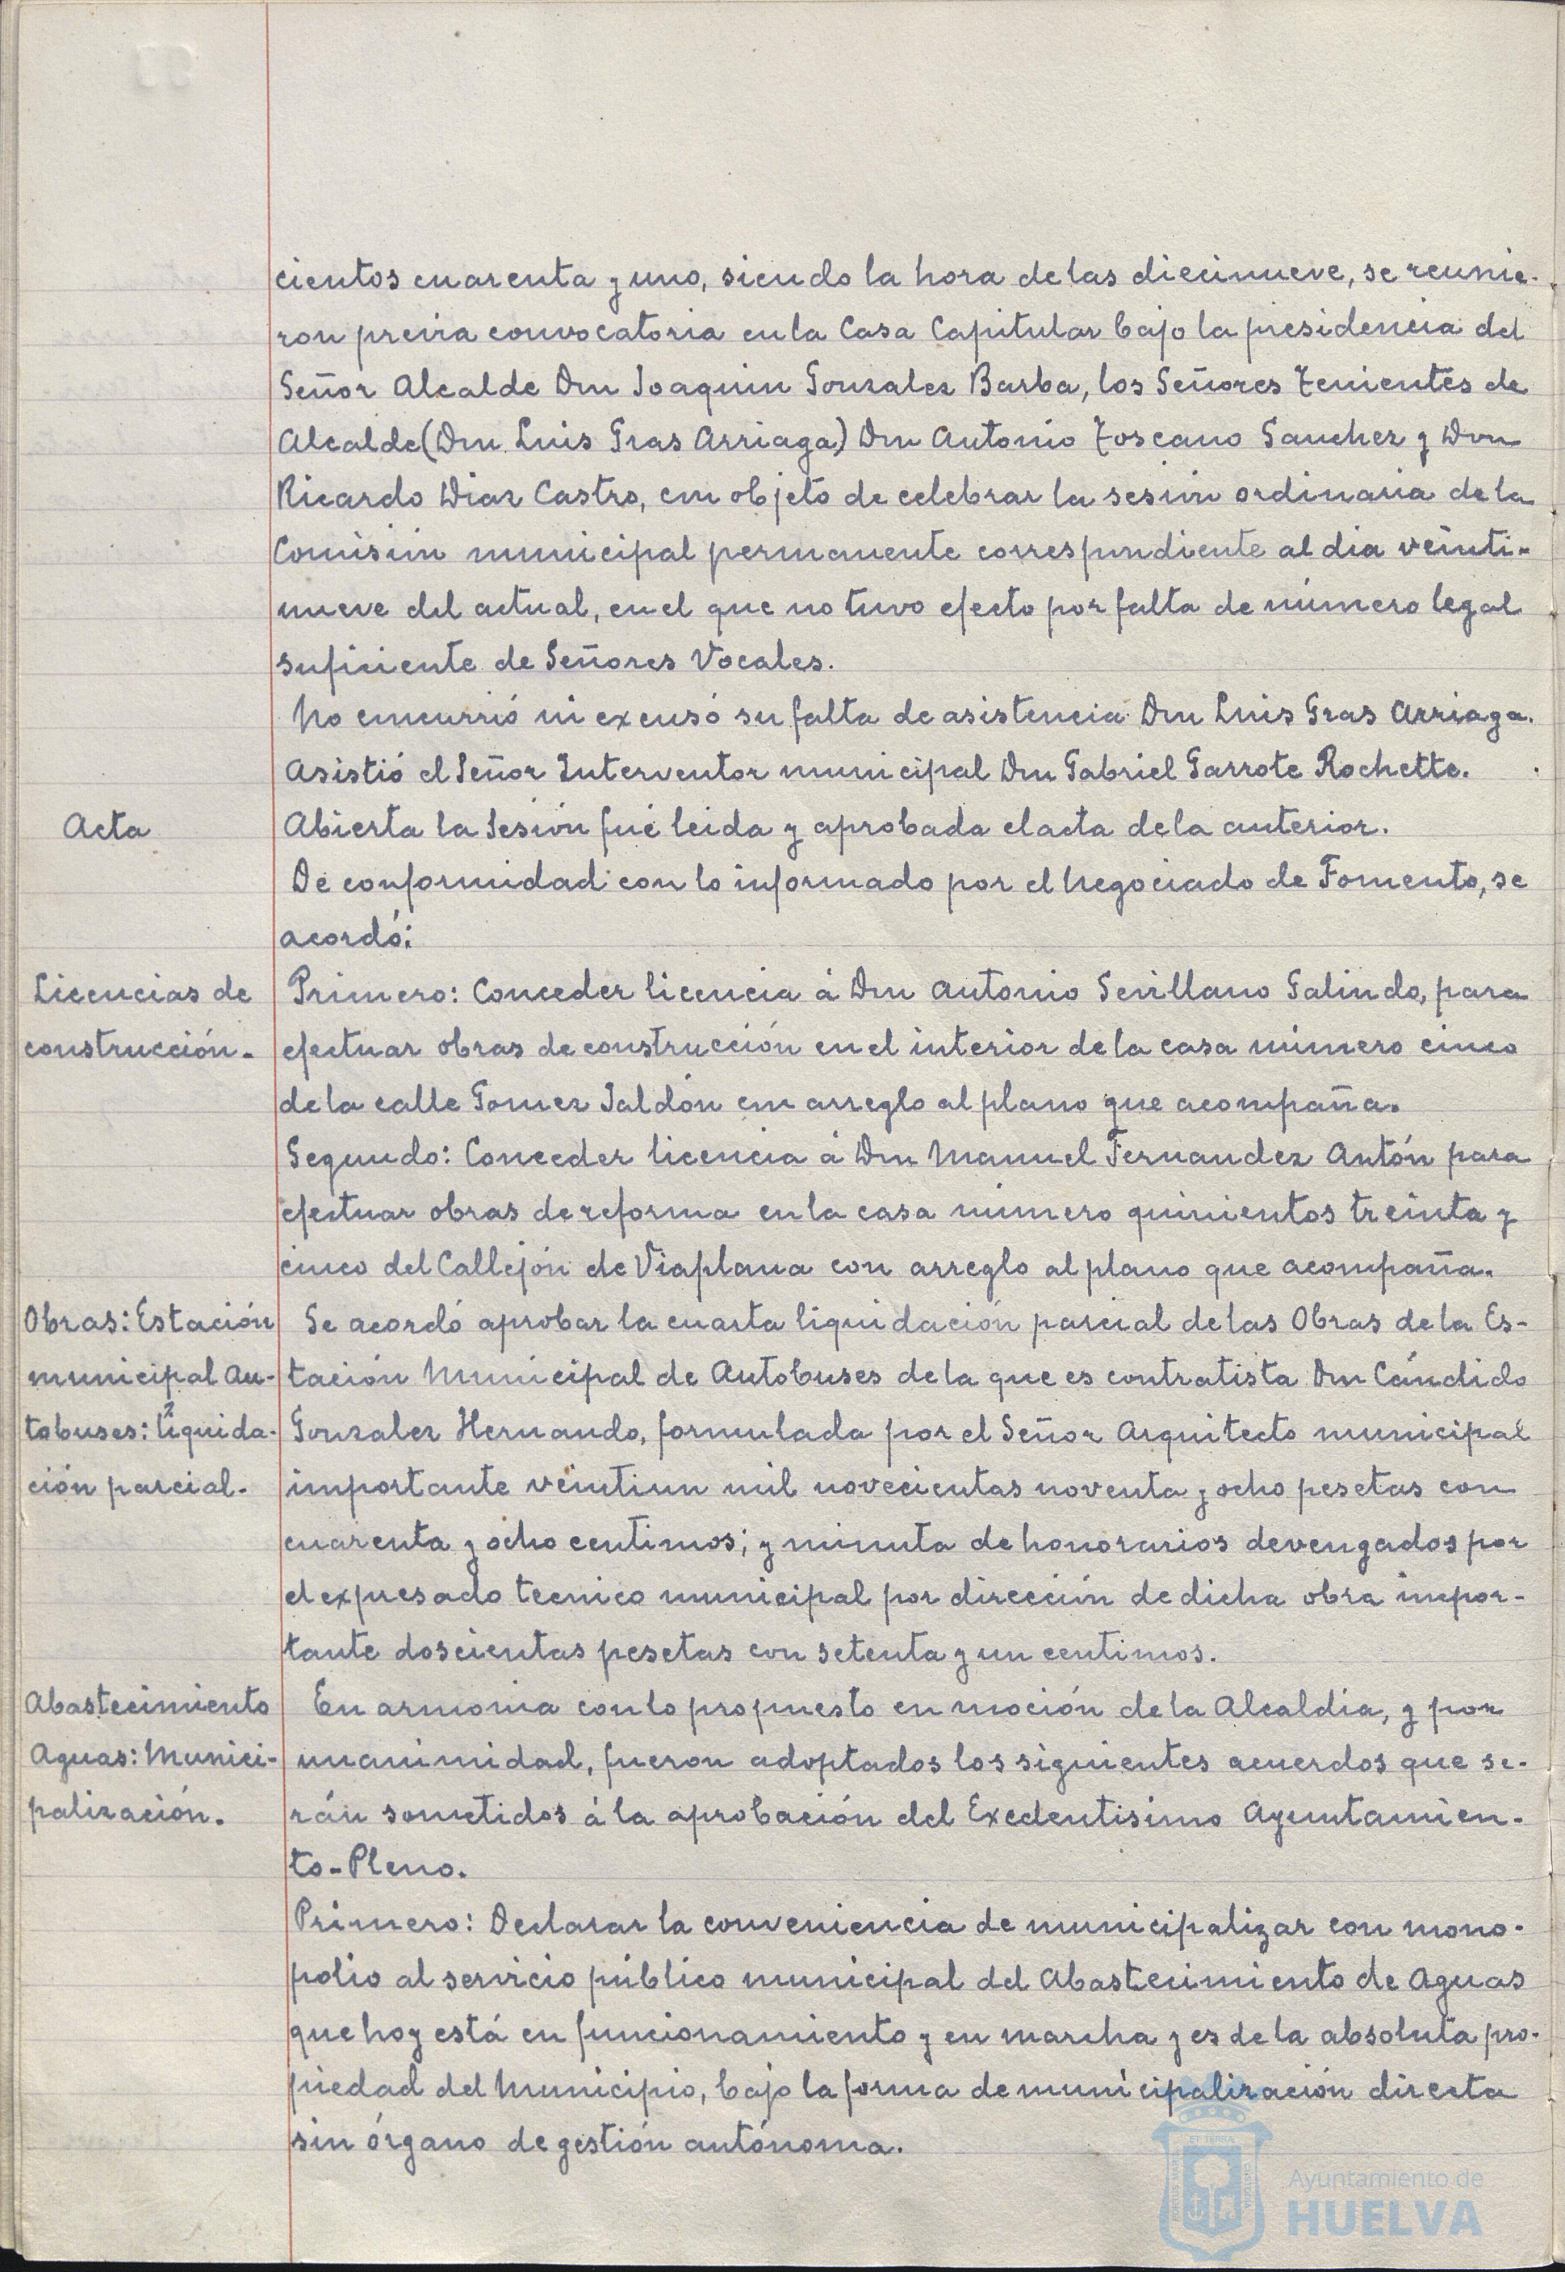 cientos cuarenta y uno, siendo la hora de las diecinueve, se reunie-
ron previa convocatoria en la Casa Capitular bajo la presidencia del
Señor Alcalde Don Joaquin Gonzalez Barba, los Señores Tenientes de
Alcalde (Don Luis Gras Arriaga) Don Antonio Toscano Sanchez y Don
Ricardo Diaz Castro, con objeto de celebrar la sesión ordinaria de la
Comisión municipal permanente correspondiente al dia veinti-
nueve del actual, en el que no tuvo efecto por falta de número legal
suficiente de Señores Vocales.
No concurrió ni excusó su falta de asistencia Don Luis Gras Arriaga.
Asistió el Señor Interventor municipal Don Gabriel Garrote Rochette.
Acta
Abierta la Sesión fué leida y aprobada el acta de la anterior.
De conformidad con lo informado por el Negociado de Fomento, se
acordó:
Licencias de
construcción.
Primero: Conceder licencia á Don Antonio Sevillano Galindo, para
efectuar obras de construcción en el interior de la casa número cinco
de la calle Gomez Jaldón con arreglo al plano que acompaña.
Segundo: Conceder licencia á Don Manuel Fernandez Antón para
efectuar obras de reforma en la casa número quinientos treinta y
cinco del Callejón de Viaplana con arreglo al plano que acompaña.
Obras: Estación
municipal Au-
tobuses: liquida-
ción parcial.
Se acordó aprobar la cuarta liquidación parcial de las Obras de la Es-
tación Municipal de Autobuses de la que es contratista Don Cándido
Gonzalez Hernando, formulada por el Señor Arquitecto municipal
importante veintiun mil novecientas noventa y ocho pesetas con
cuarenta y ocho centimos; y minuta de honorarios devengados por
el expresado tecnico municipal por dirección de dicha obra impor-
tante doscientas pesetas con setenta y un centimos.
Abastecimiento
Aguas: Munici-
palización.
En armonia con lo propuesto en moción de la Alcaldia, y por
unanimidad, fueron adoptados los siguientes acuerdos que se-
rán sometidos á la aprobación del Excelentisimo Ayuntamien-
to-Pleno.
Primero: Declarar la conveniencia de municipalizar con mono-
polio al servicio público municipal del Abastecimiento de Aguas
que hoy está en funcionamiento y en marcha y es de la absoluta pro-
piedad del Municipio, bajo la forma de municipalización directa
sin órgano de gestión autónoma.
Ayuntamiento de
HUELVA